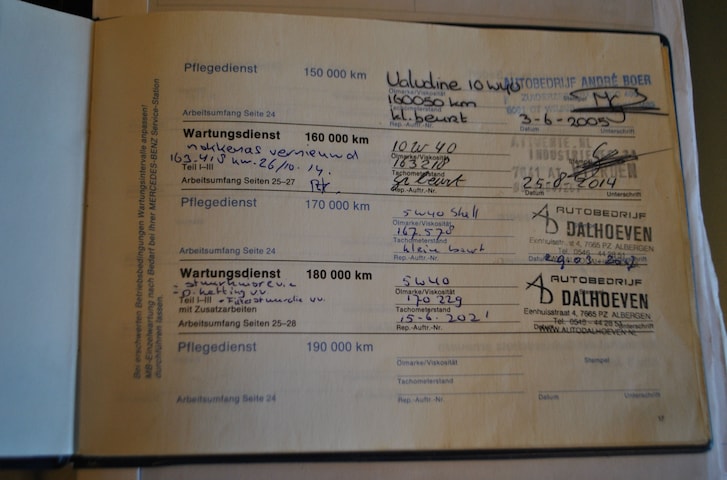 Pflegedienst 150 000 km
10W40
160050 km
kl. beurt
Ölmarke/Viskosität
Tachometerstand
Rep.-Auftr.-Nr.
AUTOBEDRIJF ANDRÉ BOER
Stempel
3-6-2005
Datum Unterschrift
Arbeitsumfang Seite 24
Wartungsdienst 160 000 km
nokkenas vernieuwd
163.418 km - 26/10. 14.
Teil I–III
Arbeitsumfang Seiten 25–27
10W40
163210
Tachometerstand
Gr beurt
Rep.-Auftr.-Nr.
ATTVENTE.NL
25-8-2014
Datum Unterschrift
Pflegedienst 170 000 km
5W40 Shell
Ölmarke/Viskosität
167.578
Tachometerstand
kleine beurt
Rep.-Auftr.-Nr.
AD AUTOBEDRIJF
DALHOEVEN
Eenhuisstraat 4, 7665 PZ ALBERGEN
Datum
Arbeitsumfang Seite 24
Wartungsdienst 180 000 km
Teil I–III
mit Zusatzarbeiten
Arbeitsumfang Seiten 25–28
5W40
Ölmarke/Viskosität
170229
Tachometerstand
15-6-2021
Rep.-Auftr.-Nr.
AD AUTOBEDRIJF
DALHOEVEN
Eenhuisstraat 4, 7665 PZ ALBERGEN
Datum Unterschrift
WWW.AUTODALHOEVEN.NL
Pflegedienst 190 000 km
Ölmarke/Viskosität
Tachometerstand
Rep.-Auftr.-Nr.
Stempel
Datum Unterschrift
Arbeitsumfang Seite 24
Bei erschwerten Betriebsbedingungen Wartungsintervalle anpassen!
MB-Einzelwartung nach Bedarf bei Ihrer MERCEDES-BENZ Service-Station
durchführen lassen.